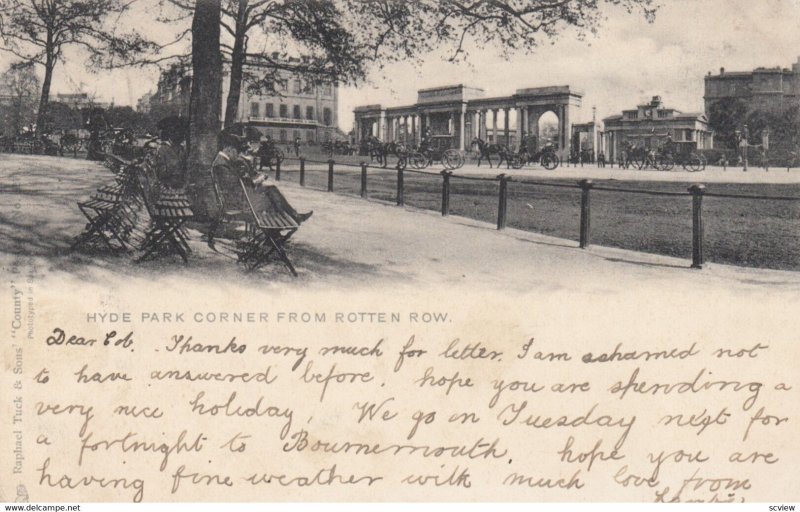 HYDE PARK CORNER FROM ROTTEN ROW.
Raphael Tuck & Sons' "County"
Phototyped in
Dear Thanks very much for letter. I am ashamed not
to have answered before. hope you are spending a
very nice Holiday, We go on Tuesday next for
a fortnight to Bournemouth. hope you are
having fine weather with much love from
scview